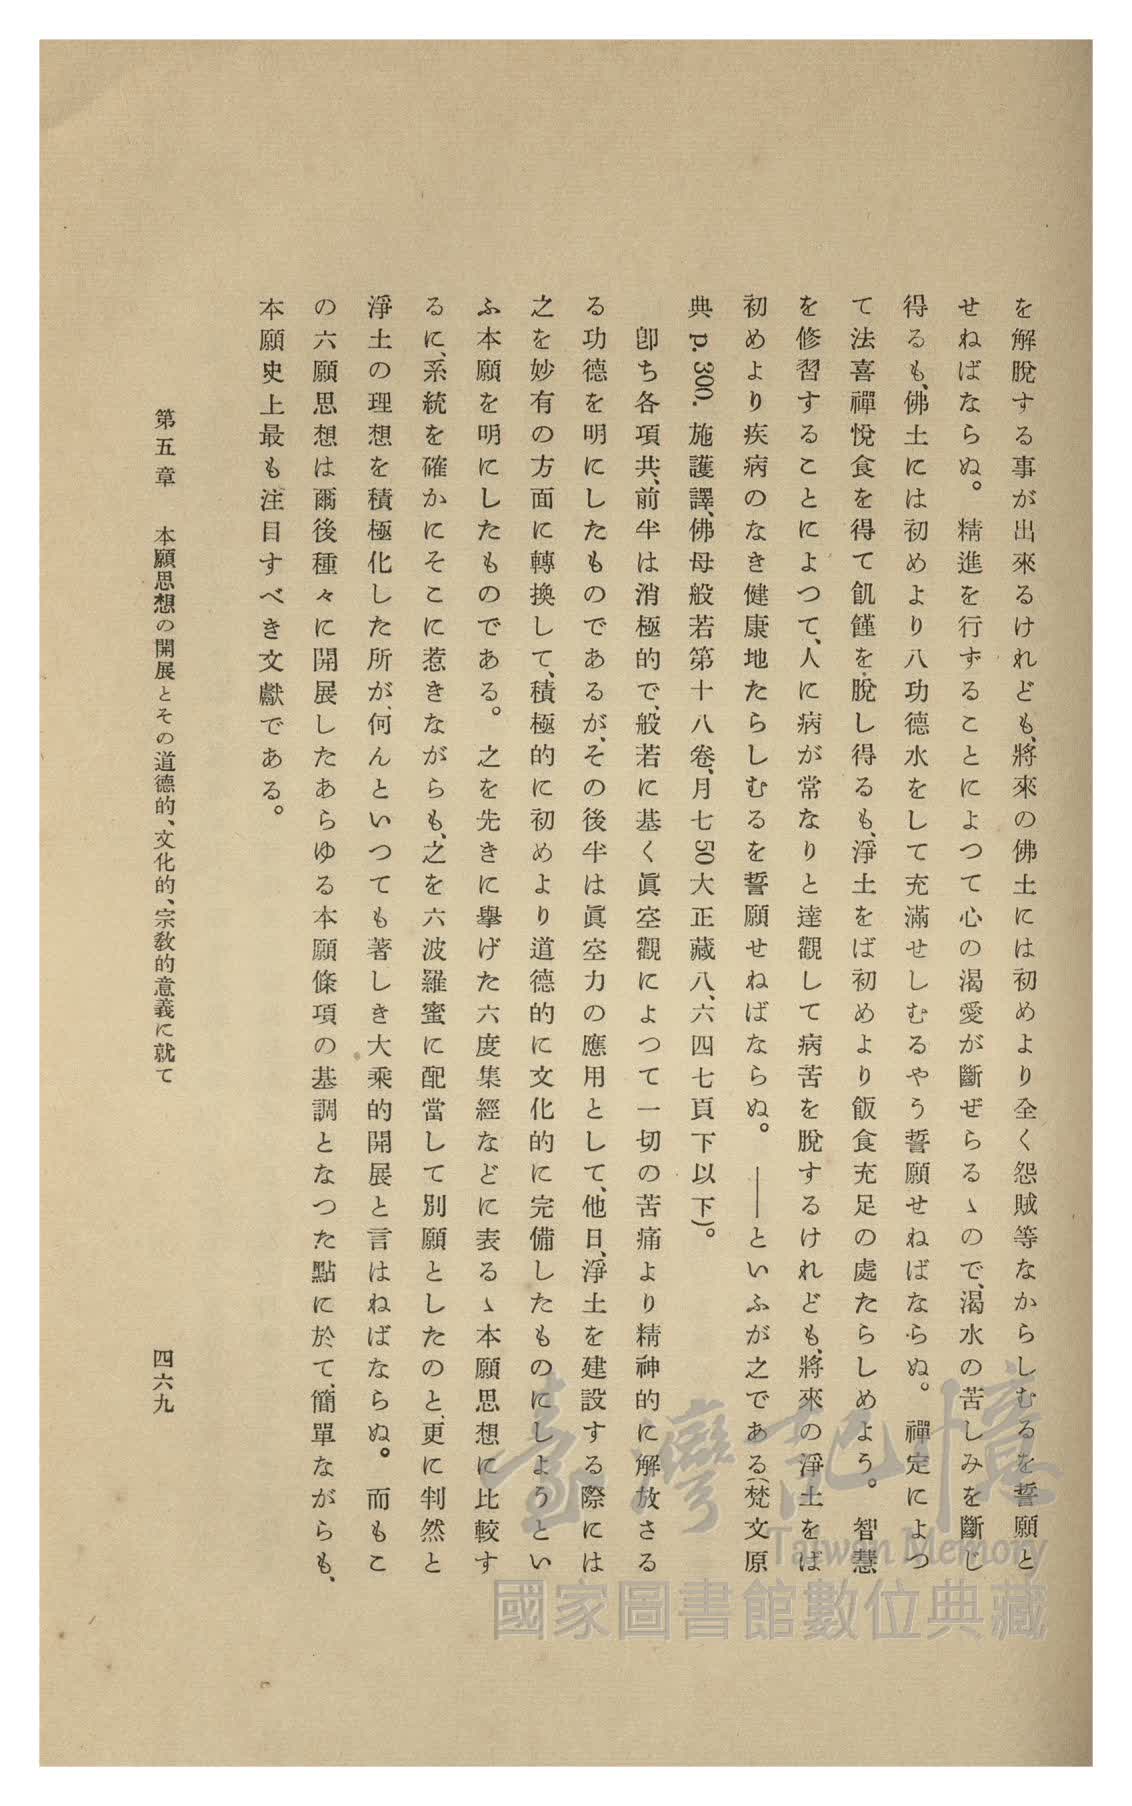 を解脫する事が出來るけれども、將來の佛土には初めより全く怨賊等なからしむるを誓願と
せねばならぬ。精進を行ずることによつて心の渴愛が斷ぜらるゝので、渴水の苦しみを斷じ
得るも、佛土には初めより八功德水をして充滿せしむるやう誓願せねばならぬ。禪定によつ
て法喜禪悅食を得て飢饉を脫し得るも、淨土をば初めより飯食充足の處たらしめよう。智慧
を修習することによつて、人に病が常なりと達觀して病苦を脫するけれども、將來の淨土をば
初めより疾病のなき健康地たらしむるを誓願せねばならぬ。――といふが之である(梵文原
典 p. 300. 施護譯、佛母般若第十八卷、月七50大正藏八、六四七頁下以下)。
卽ち各項共、前半は消極的で、般若に基く眞空觀によつて一切の苦痛より精神的に解放さる
る功德を明にしたものであるが、その後半は眞空力の應用として、他日、淨土を建設する際には
之を妙有の方面に轉換して、積極的に初めより道德的に文化的に完備したものにしようとい
ふ本願を明にしたものである。之を先きに擧げた六度集經などに表るゝ本願思想に比較す
るに、系統を確かにそこに惹きながらも、之を六波羅蜜に配當して別願としたのと、更に判然と
淨土の理想を積極化した所が、何んといつても著しき大乘的開展と言はねばならぬ。而もこ
の六願思想は爾後種々に開展したあらゆる本願條項の基調となつた點に於て、簡單ながらも、
本願史上最も注目すべき文獻である。
第五章 本願思想の開展とその道德的、文化的、宗敎的意義に就て
四六九
臺灣記憶
Taiwan Memory
國家圖書館數位典藏